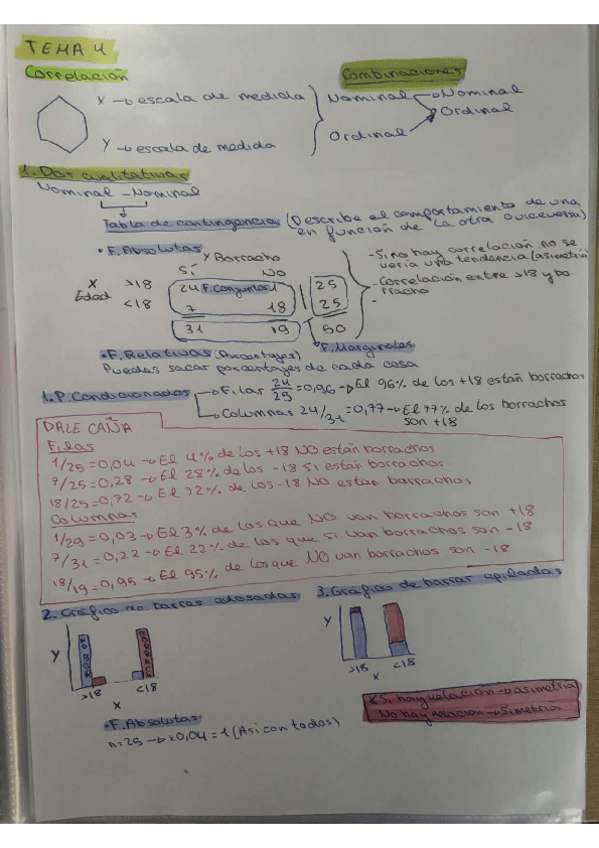 TEMA 4
Correlación
Combinaciones
X → escala de medida
Nominal → Nominal
Ordinal
Ordinal
Y → escala de medida
1. Dos cualitativas
Nominal - Nominal
Tabla de contingencia (Describe el comportamiento de una
en función de la otra o viceversa)
• F. Absolutas
Y Borracho
Sí NO
X
Edad
>18 24 F. Conjuntas 1 25
<18 7 18 25
31 19 50
- Si no hay correlación no se
vería una tendencia (asimetría)
- Correlación entre >18 y bo
rracho
-
• F. Marginales
• F. Relativas (Porcentajes)
Puedes sacar porcentajes de cada casa
1. P. Condicionados
→ Filas 24/25 = 0,96 → El 96% de los +18 están borrachos
→ Columnas 24/31 = 0,77 → El 77% de los borrachos
son +18
DALE CAÑA
Filas
1/25 = 0,04 → El 4% de los +18 NO están borrachos
7/25 = 0,28 → El 28% de los -18 SI están borrachos
18/25 = 0,72 → El 72% de los -18 NO están borrachos
Columnas
1/29 = 0,03 → El 3% de los que NO van borrachos son +18
7/31 = 0,22 → El 22% de los que si van borrachos son -18
18/19 = 0,95 → El 95% de los que NO van borrachos son -18
2. Gráfico no barras adosadas
3. Gráfico de barras apiladas
Y
>18 <18
X
Y
>18 <18
X
* Si hay relación → asimetría
No hay relación → Simetría
• F. Absolutas
n = 25 → x 0,04 = 1 (Así con todos)